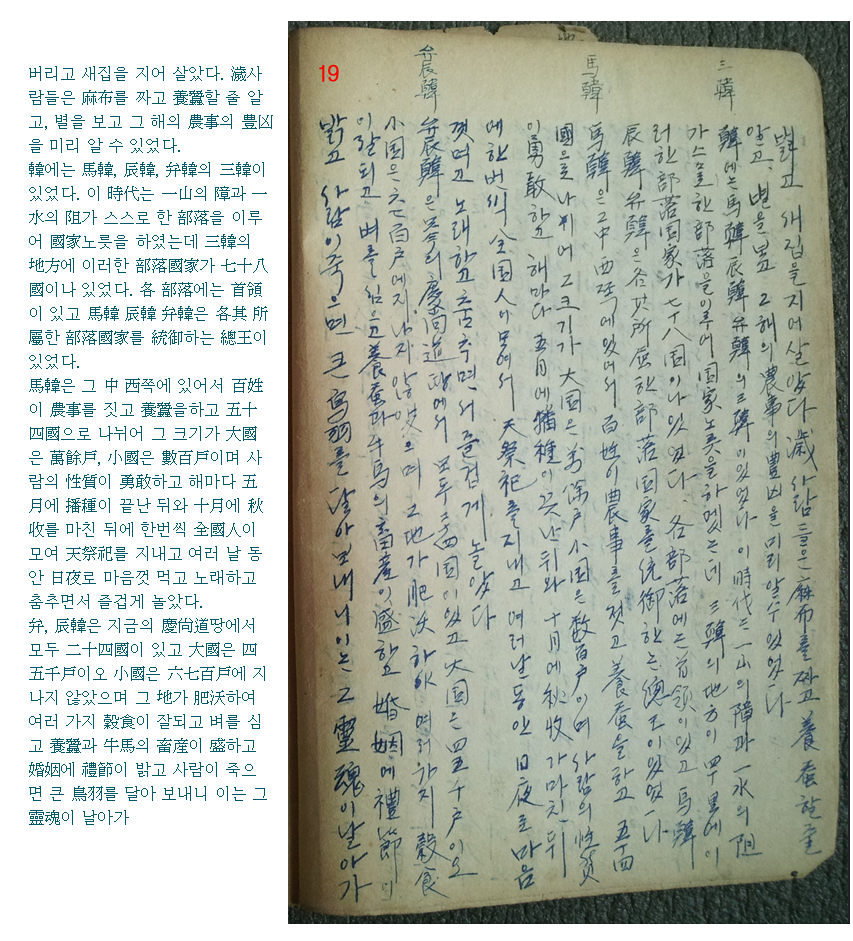 버리고 새집을 지어 살았다. 濊사
람들은 麻布를 짜고 養蠶할 줄 알
고, 별을 보고 그 해의 農事의 豊凶
을 미리 알 수 있었다.
韓에는 馬韓, 辰韓, 弁韓의 三韓이
있었다. 이 時代는 一山의 障과 一
水의 阻가 스스로 한 部落을 이루
어 國家노릇을 하였는데 三韓의
地方에 이러한 部落國家가 七十八
國이나 있었다. 各 部落에는 首領
이 있고 馬韓 辰韓 弁韓은 各其 所
屬한 部落國家를 統御하는 總王이
있었다.
馬韓은 그 中 西쪽에 있어서 百姓
이 農事를 짓고 養蠶을하고 五十
四國으로 나뉘어 그 크기가 大國
은 萬餘戶, 小國은 數百戶이며 사
람의 性質이 勇敢하고 해마다 五
月에 播種이 끝난 뒤와 十月에 秋
收를 마친 뒤에 한번씩 全國人이
모여 天祭祀를 지내고 여러 날 동
안 日夜로 마음껏 먹고 노래하고
춤추면서 즐겁게 놀았다.
弁, 辰韓은 지금의 慶尙道땅에서
모두 二十四國이 있고 大國은 四
五千戶이오 小國은 六七百戶에 지
나지 않았으며 그 地가 肥沃하여
여러 가지 穀食이 잘되고 벼를 심
고 養蠶과 牛馬의 畜産이 盛하고
婚姻에 禮節이 밝고 사람이 죽으
면 큰 鳥羽를 달아 보내니 이는 그
靈魂이 날아가
19
三韓
馬韓
弁辰韓
밝고 새집을지어살았다 濊사람들은 麻布를 짜고 養蚕할줄
알고, 별을보고 그해의 農事의 豊凶을 미리알수있었다
韓에는 馬韓 辰韓 弁韓의 三韓이있었다 이時代는 一山의 障과 一水의 阻
가스스로한部落을이루어 国家노릇을하였는데 三韓의地方이 四千里에이
러한部落国家가七十八国이나있었다 各部落에는首領이있고 馬韓
辰韓弁韓은各其所属한部落国家를統御하는總王이있었다
馬韓은그中西쪽에있어서 百姓이農事를짓고養蚕을하고 五十四
國으로나뉘어그크기가 大国은万餘戶小国은数百戶이며 사람의性質
이勇敢하고 해마다 五月에播種이끗난뒤와 十月에秋收가마친뒤
에한번씩全国人이모여서 天祭祀를지내고 여러날동안日夜로마음
껏먹고노래하고춤추면서즐겁게놀았다
弁辰韓은 慶尙道땅에서 모두二十四国이있고大国은四五千戶이오
小国은六七百戶에지나지않았으며 그地가肥沃하야여러가지穀食
이잘되고벼를심으고養蚕과牛馬의畜産이盛하고婚姻에禮節이
밝고 사람이죽으면 큰鳥羽를달아보내니이는그靈魂이날아가